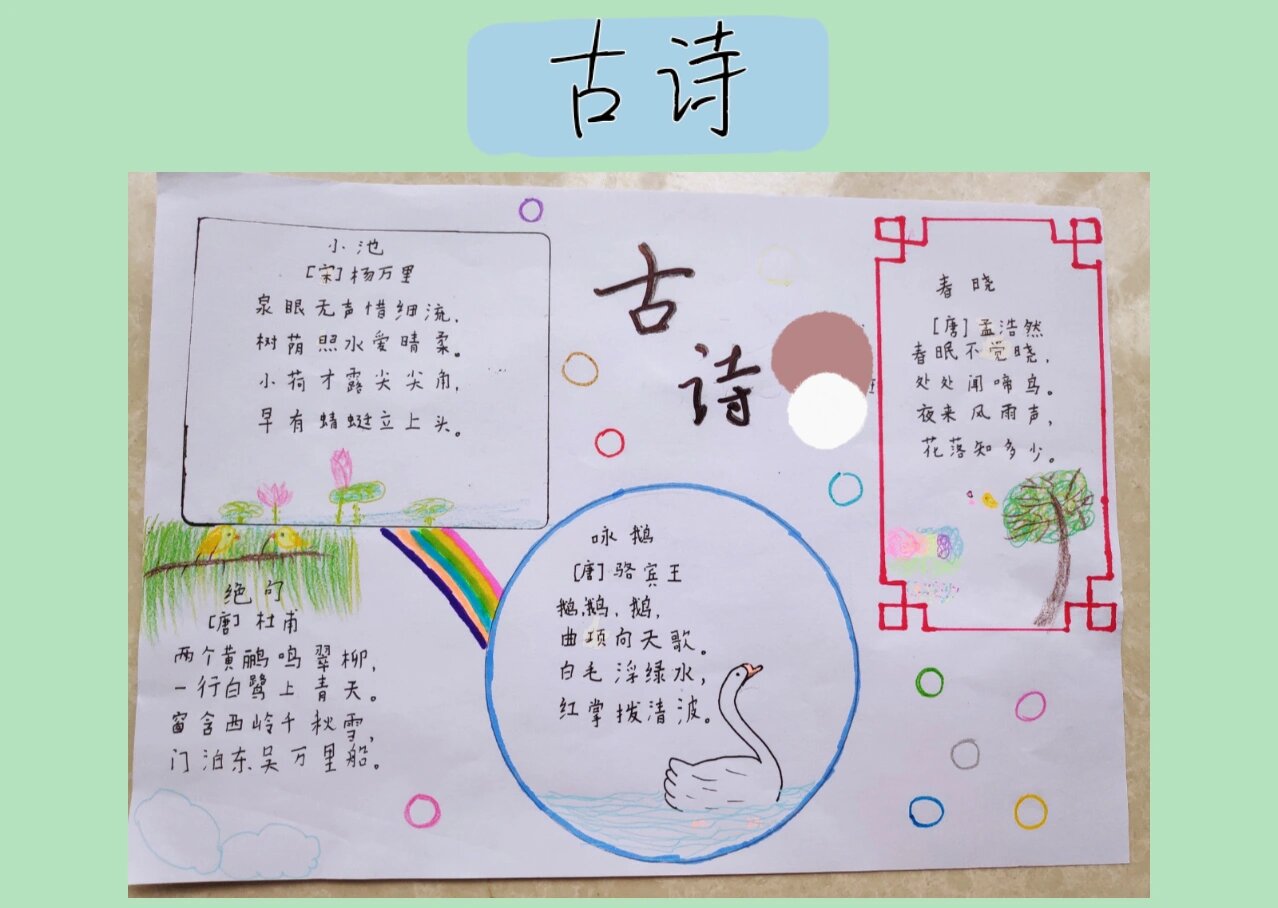 古诗
小池
[宋]杨万里
泉眼无声惜细流，
树荫照水爱晴柔。
小荷才露尖尖角，
早有蜻蜓立上头。
古
诗
春晓
[唐]孟浩然
春眠不觉晓，
处处闻啼鸟。
夜来风雨声，
花落知多少。
绝句
[唐]杜甫
两个黄鹂鸣翠柳，
一行白鹭上青天。
窗含西岭千秋雪，
门泊东吴万里船。
咏鹅
[唐]骆宾王
鹅，鹅，鹅，
曲项向天歌。
白毛浮绿水，
红掌拨清波。